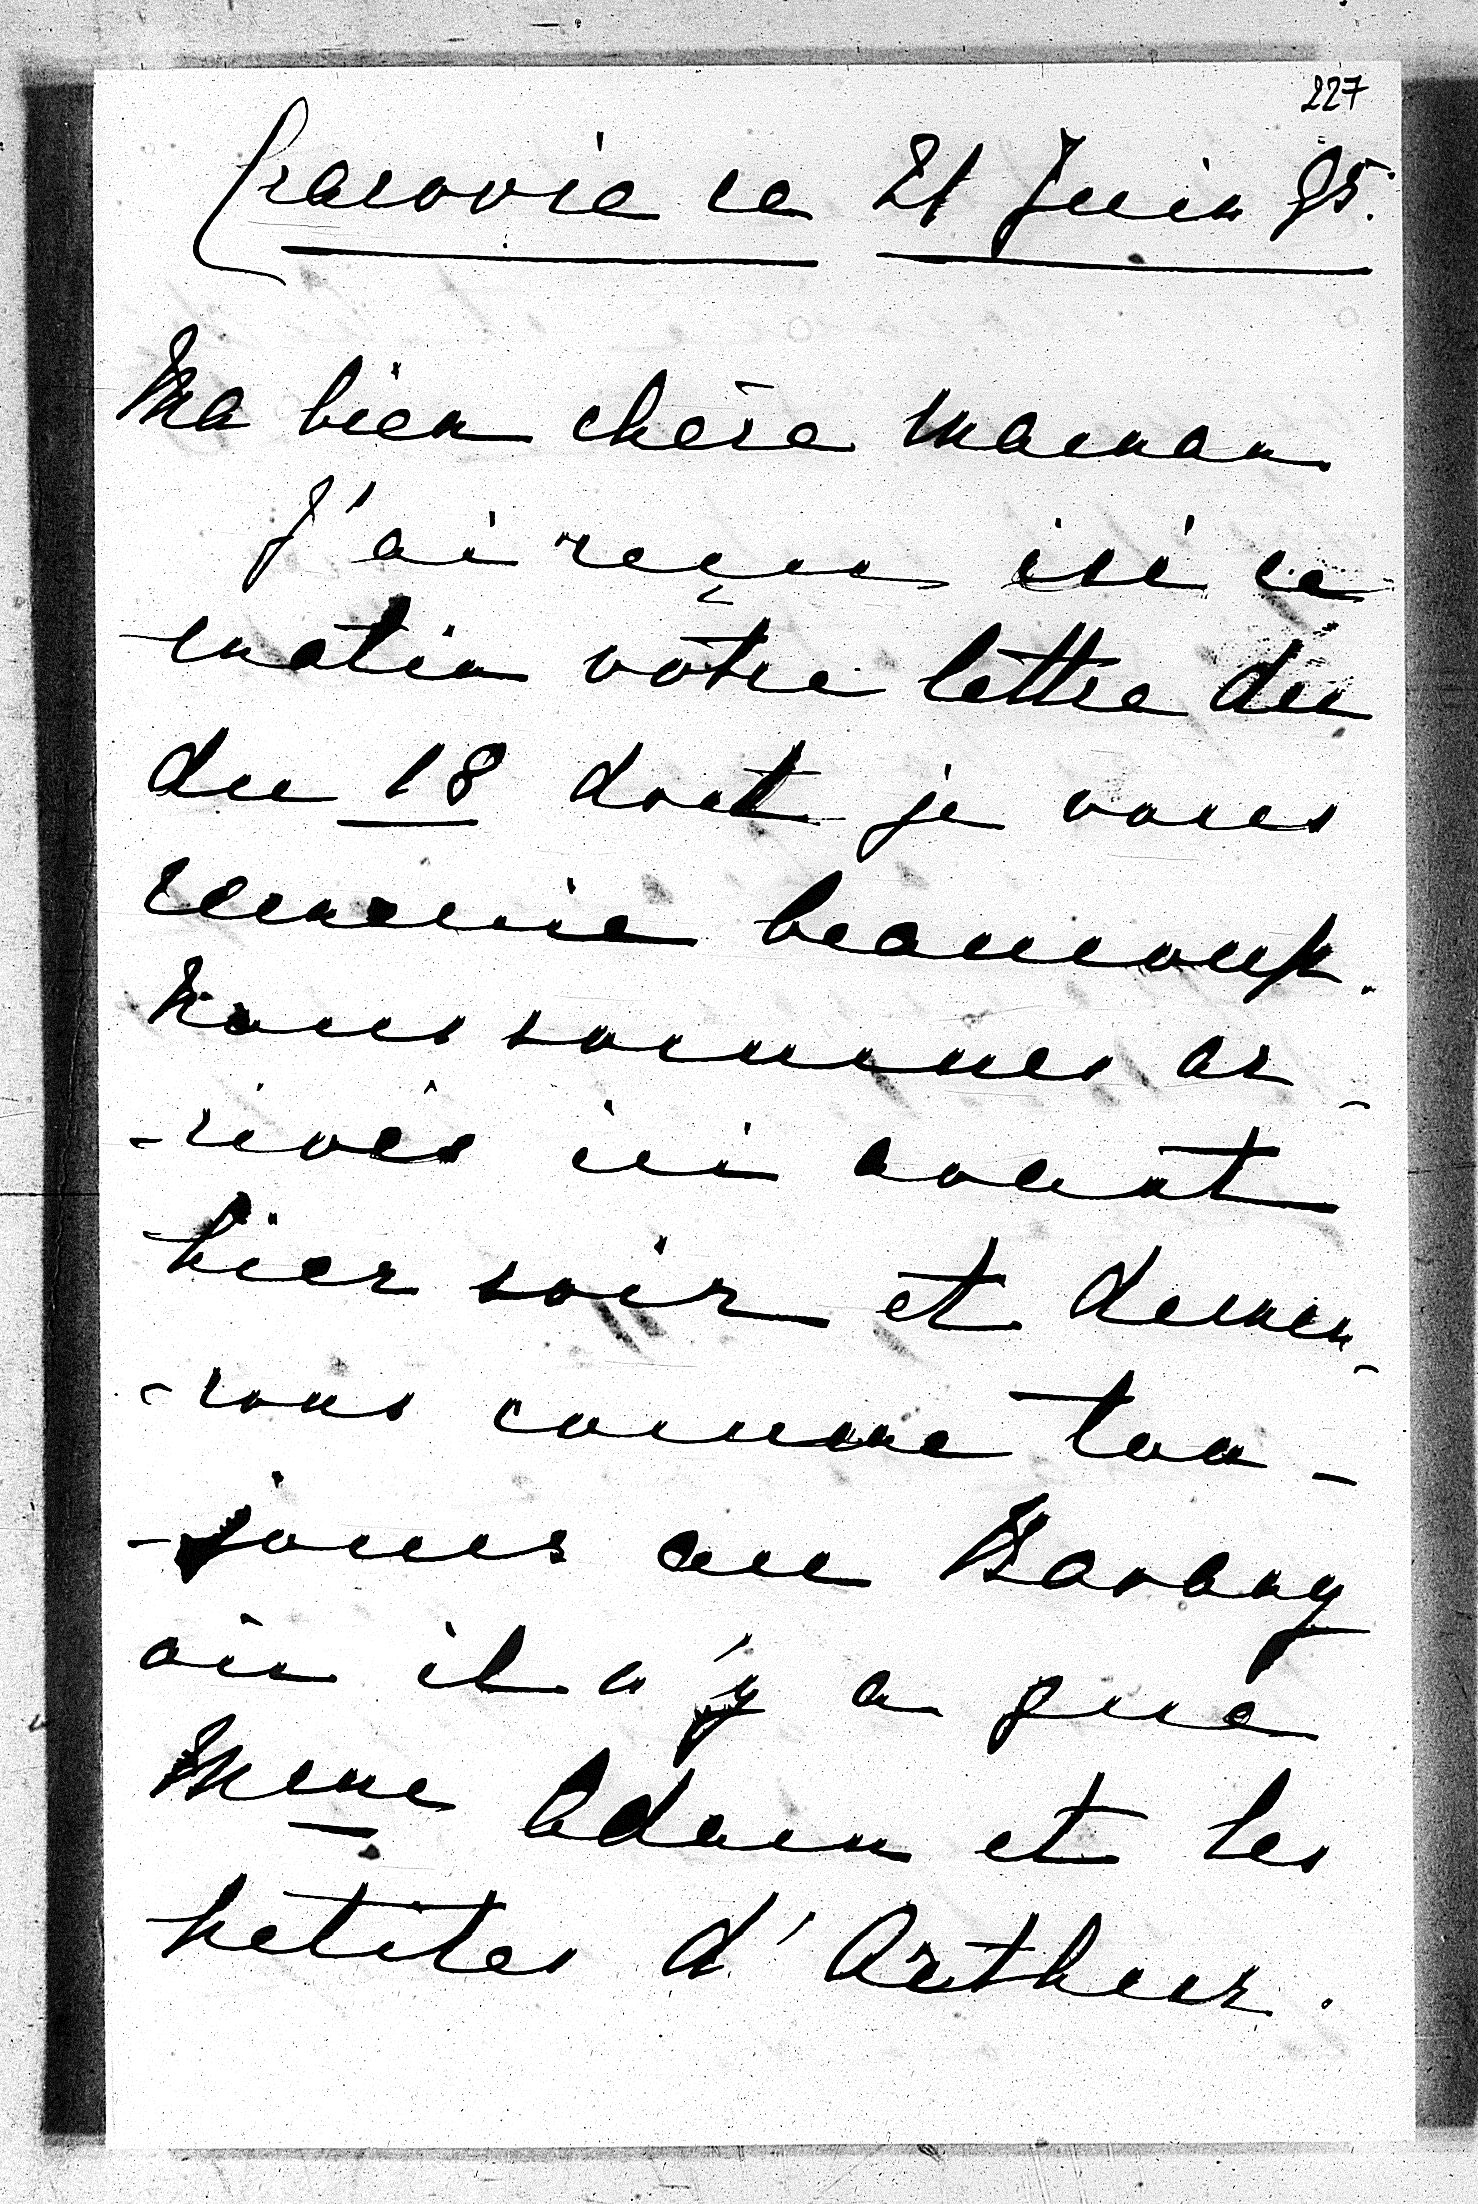 227
Cracovie ce 21 Juin 95.
Ma bien chère Maman
J'ai reçu ici ce
matin votre lettre du
du 18 dont je vous
remercie beaucoup.
Nous sommes ar-
-rivés ici avant
hier soir et demeu-
-rons comme tou-
-jours au Barany
où il n'y a que
Mme Adam et les
petites d'Arthur.